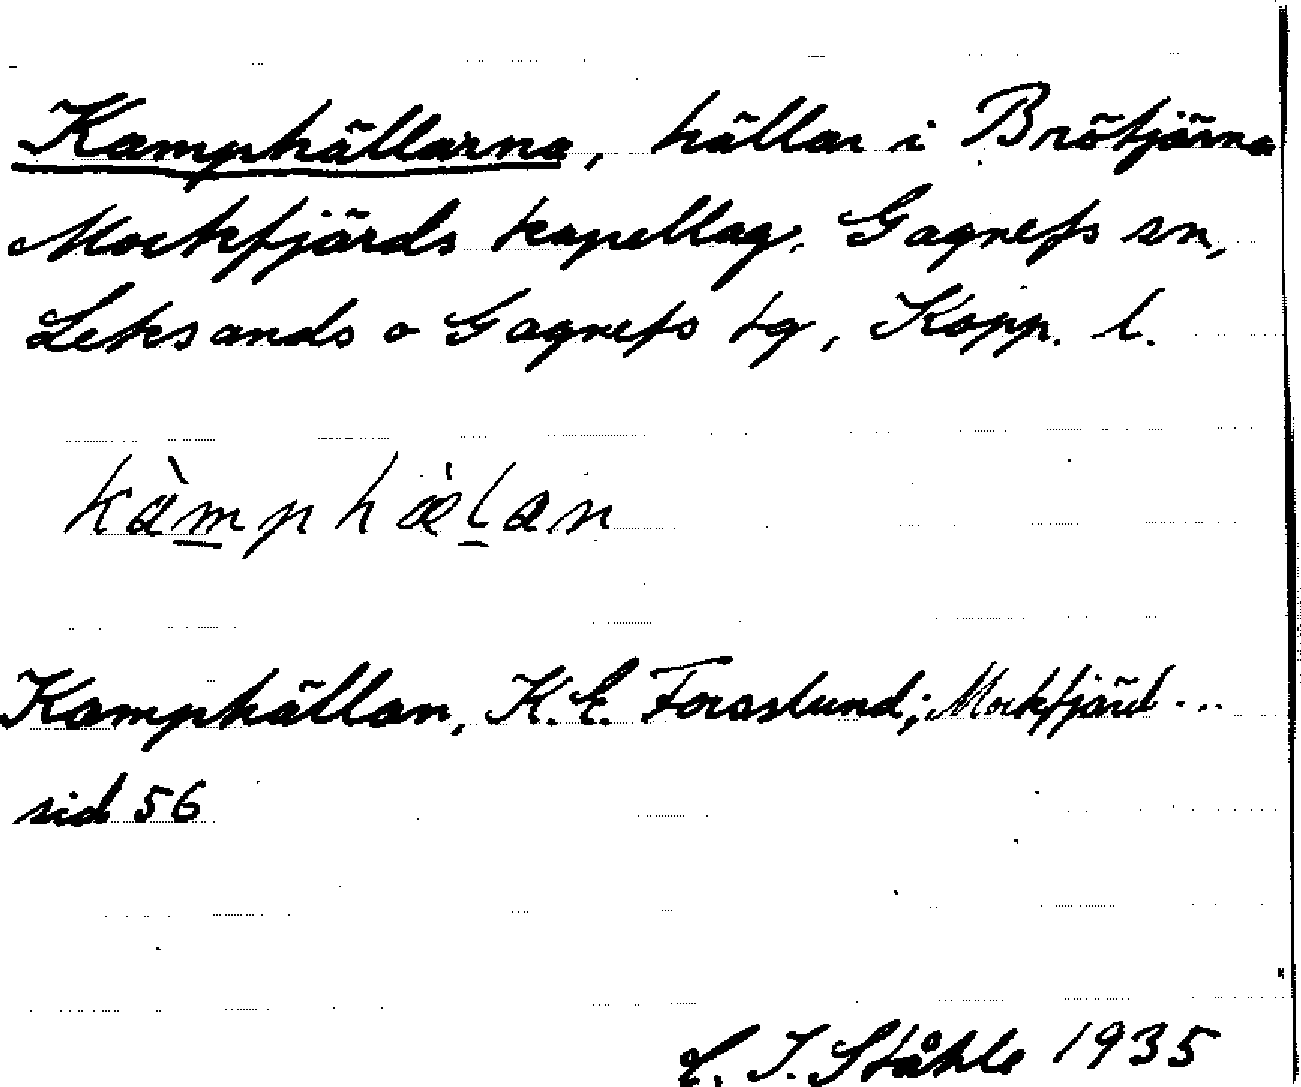 Kamphällarna, hällar i Brötjärna
Mockfjärds kapellag, Gagnefs sn,
Leksands o Gagnefs tg, Kopp. l.
kàmphæ̀lan
Kamphällan, K.E. Forsslund; Mockfjärd...
sid 56
C. I. Ståhle 1935